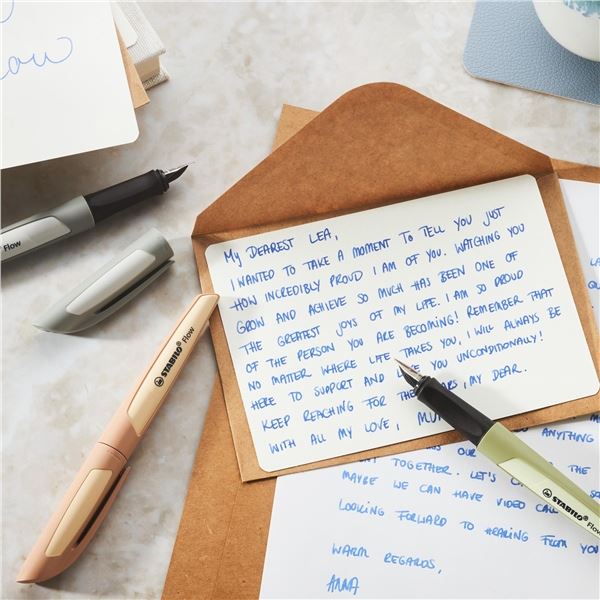 Flow
Flow
STABILO Flow
MY DEAREST LEA,
I WANTED TO TAKE A MOMENT TO TELL YOU JUST
HOW INCREDIBLY PROUD I AM OF YOU. WATCHING YOU
GROW AND ACHIEVE SO MUCH HAS BEEN ONE OF
THE GREATEST JOYS OF MY LIFE. I AM SO PROUD
OF THE PERSON YOU ARE BECOMING! REMEMBER THAT
NO MATTER WHERE LIFE TAKES YOU, I WILL ALWAYS BE
HERE TO SUPPORT AND YOU UNCONDITIONALLY!
KEEP REACHING FOR THE , MY DEAR.
WITH ALL MY LOVE,
STABILO Flow
ANYTHING
OUR THE
TOGETHER. LET'S
MAYBE WE CAN HAVE VIDEO CALL
LOOKING FORWARD TO HEARING FROM YOU
WARM REGARDS,
ANNA